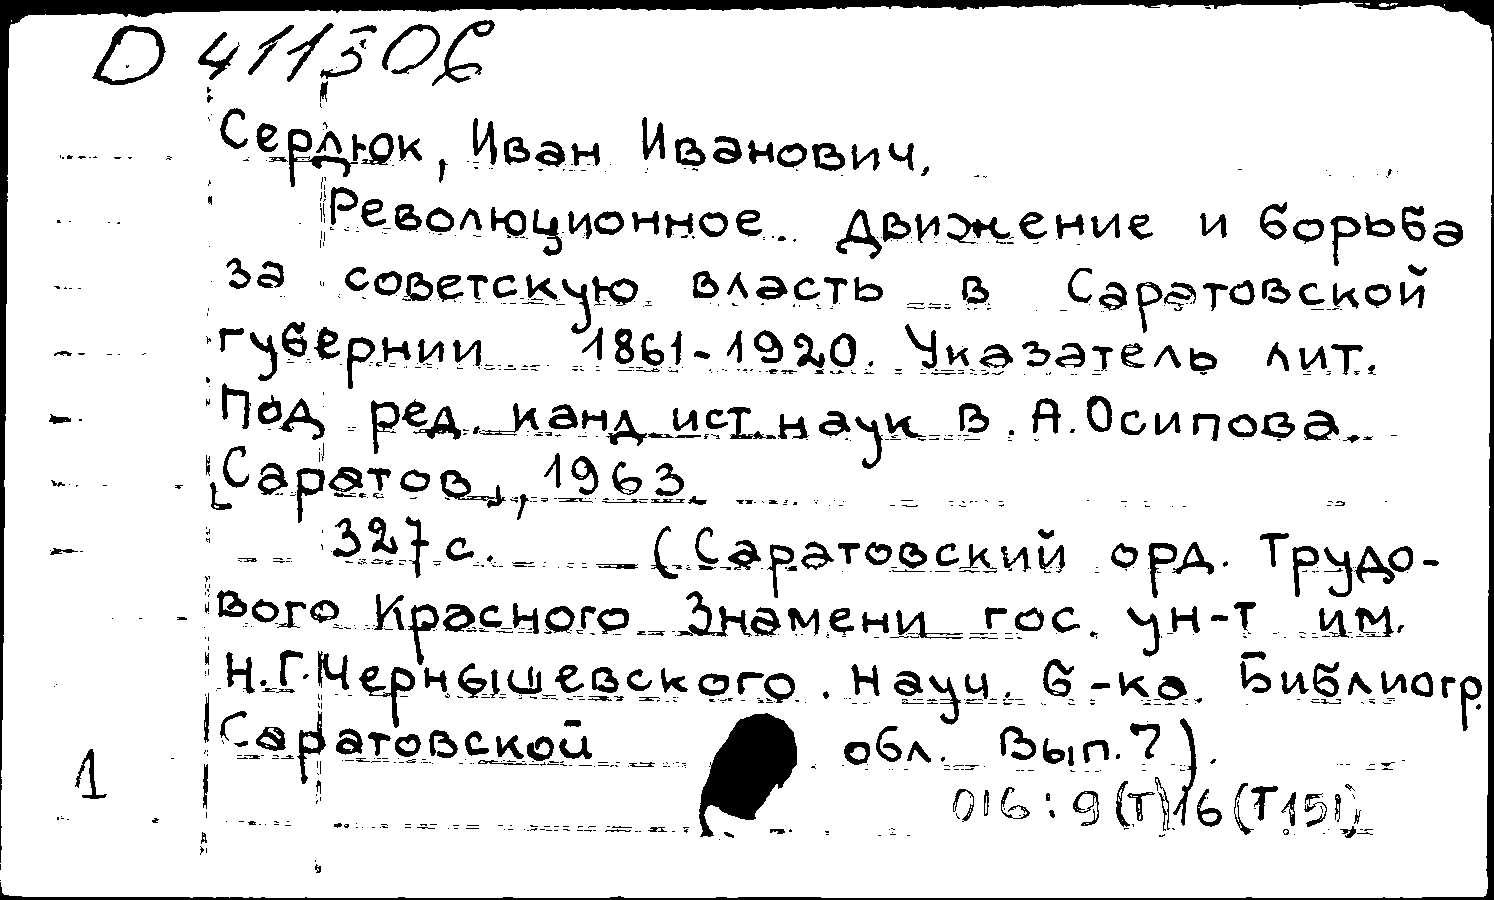 D 411306
Сердюк, Иван Иванович.
Революционное движение и борьба
за советскую власть в Саратовской
губернии 1861-1920. Указатель лит.
Под ред. канд. ист. наук В. А. Осипова.
[Саратов], 1963.
327 с. (Саратовский орд. Трудо-
вого Красного Знамени гос. ун-т им.
Н.Г. Чернышевского. Науч. б-ка. Библиогр.
Саратовской обл. Вып. 7).
1
016:9(Т)16(Т151)